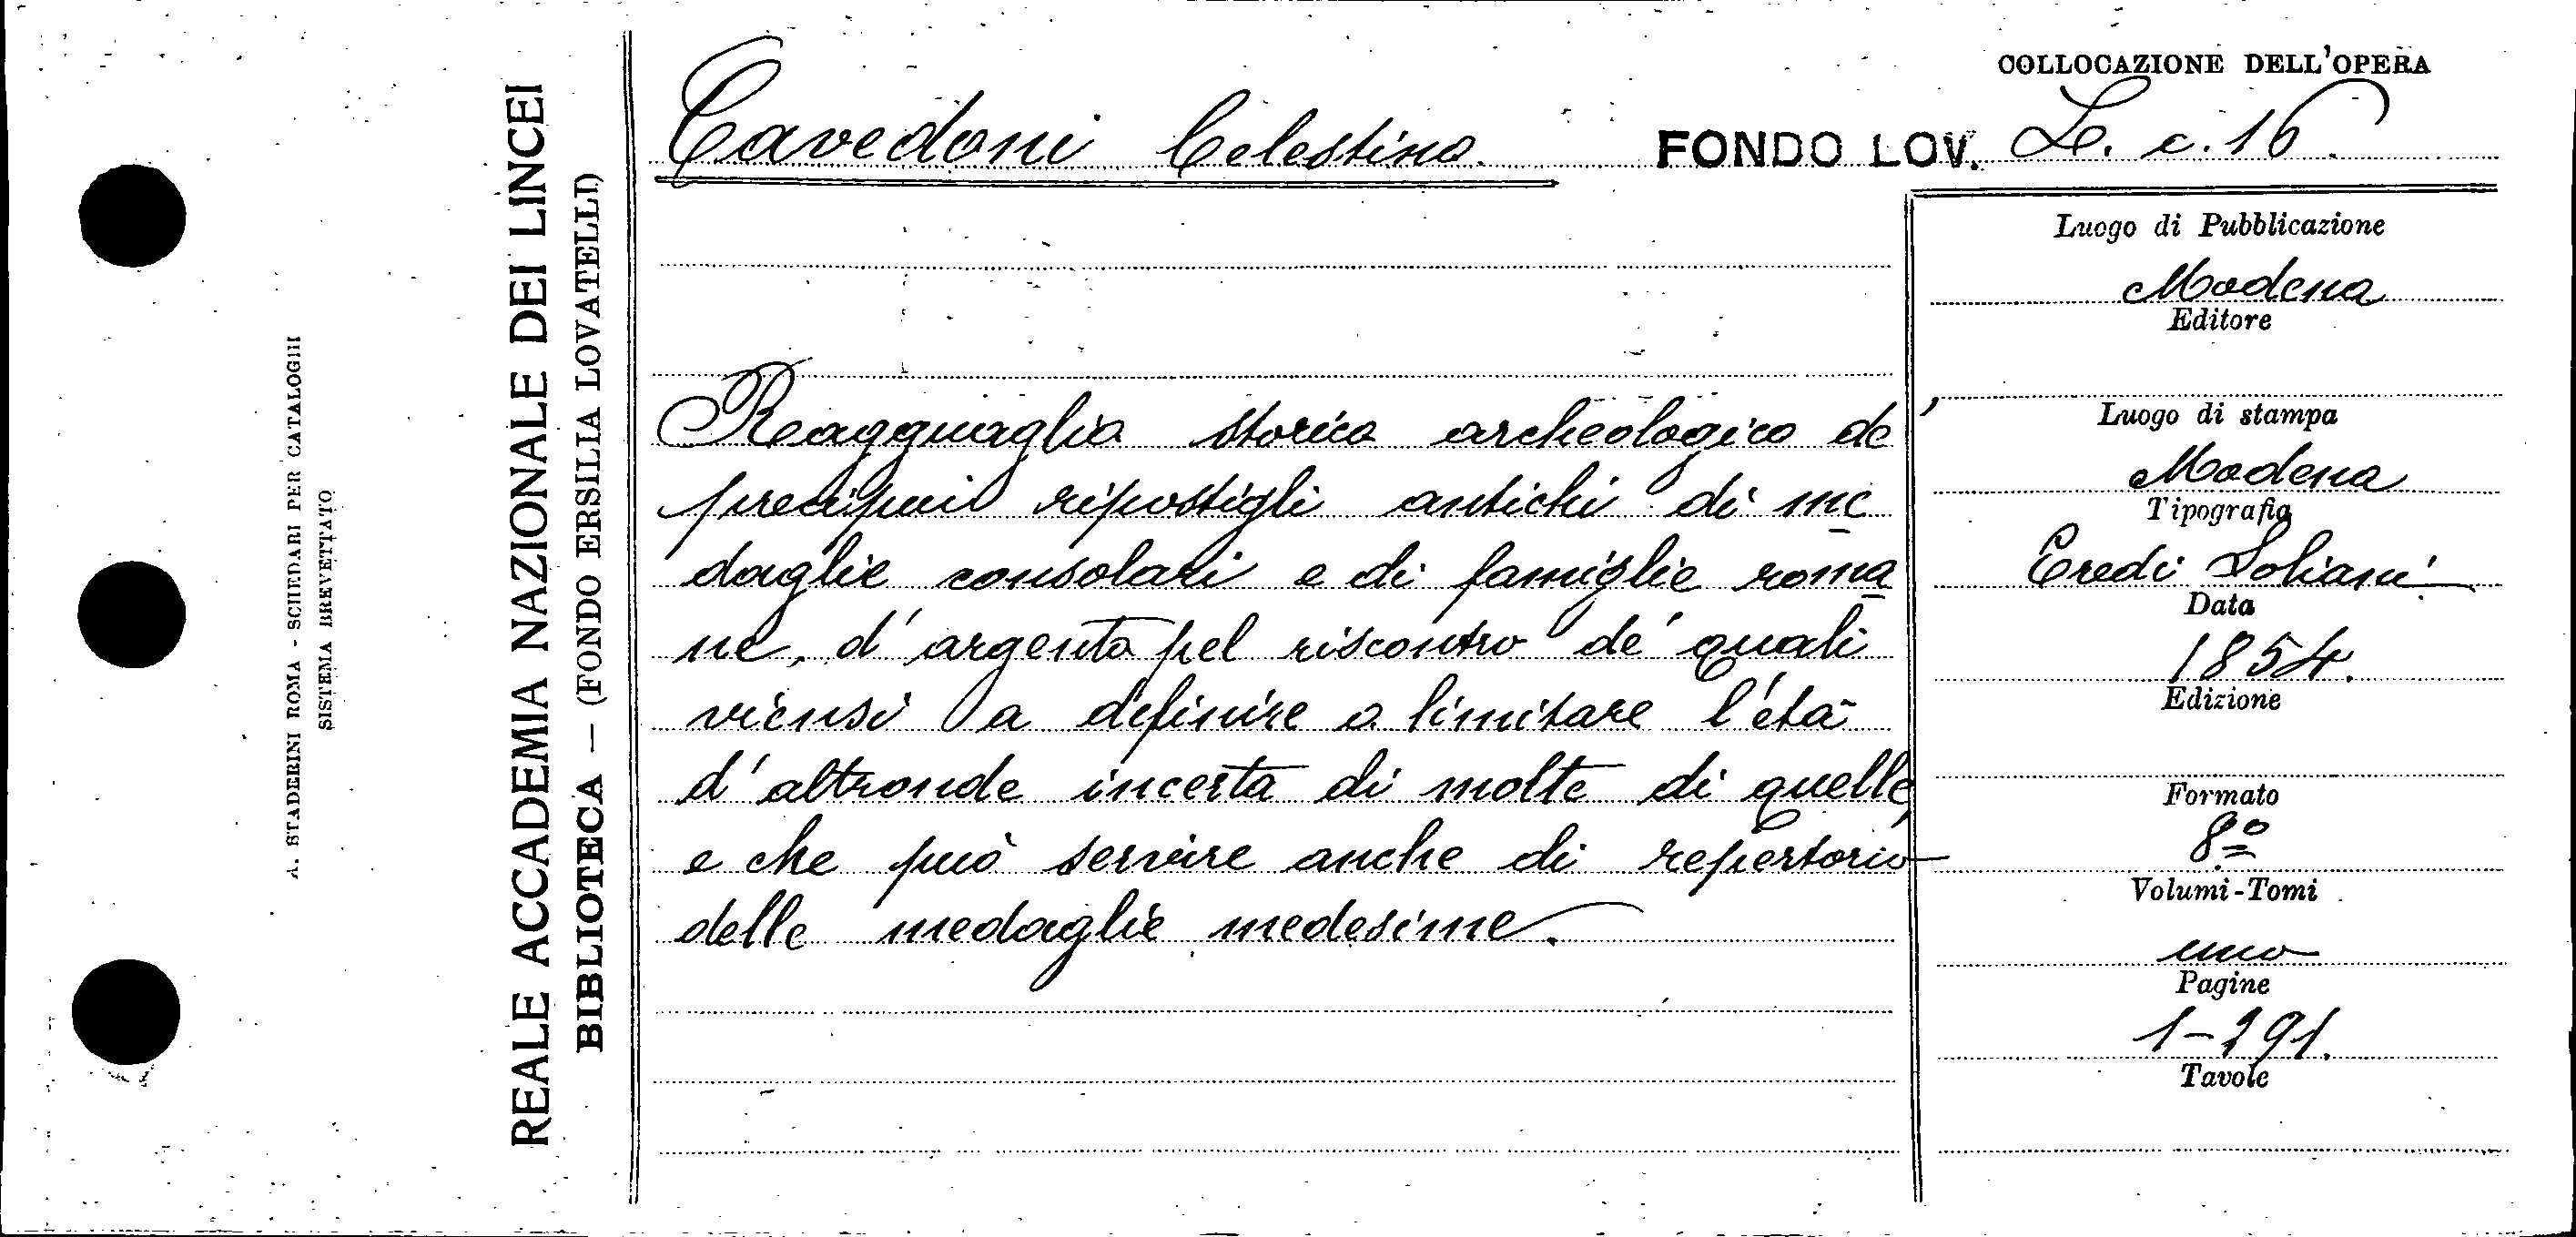 COLLOCAZIONE DELL'OPERA
Cavedoni Celestino.
FONDO LOV. L. c. 16.
REALE ACCADEMIA NAZIONALE DEI LINCEI
BIBLIOTECA — (FONDO ERSILIA LOVATELLI)
A. STADERINI ROMA - SCHEDARI PER CATALOGHI
SISTEMA BREVETTATO
Ragguaglio storico archeologico de'
precipui ripostigli antichi di me
daglie consolari e di famiglie roma
ne, d'argento pel riscontro de' quali
viensi a definire o limitare l'età
d'altronde incerta di molte di quelle,
e che può servire anche di repertorio
delle medaglie medesime.
Luogo di Pubblicazione
Modena
Editore
Luogo di stampa
Modena
Tipografia
Eredi Soliani
Data
1854.
Edizione
Formato
8º
Volumi-Tomi
uno
Pagine
1-291.
Tavole